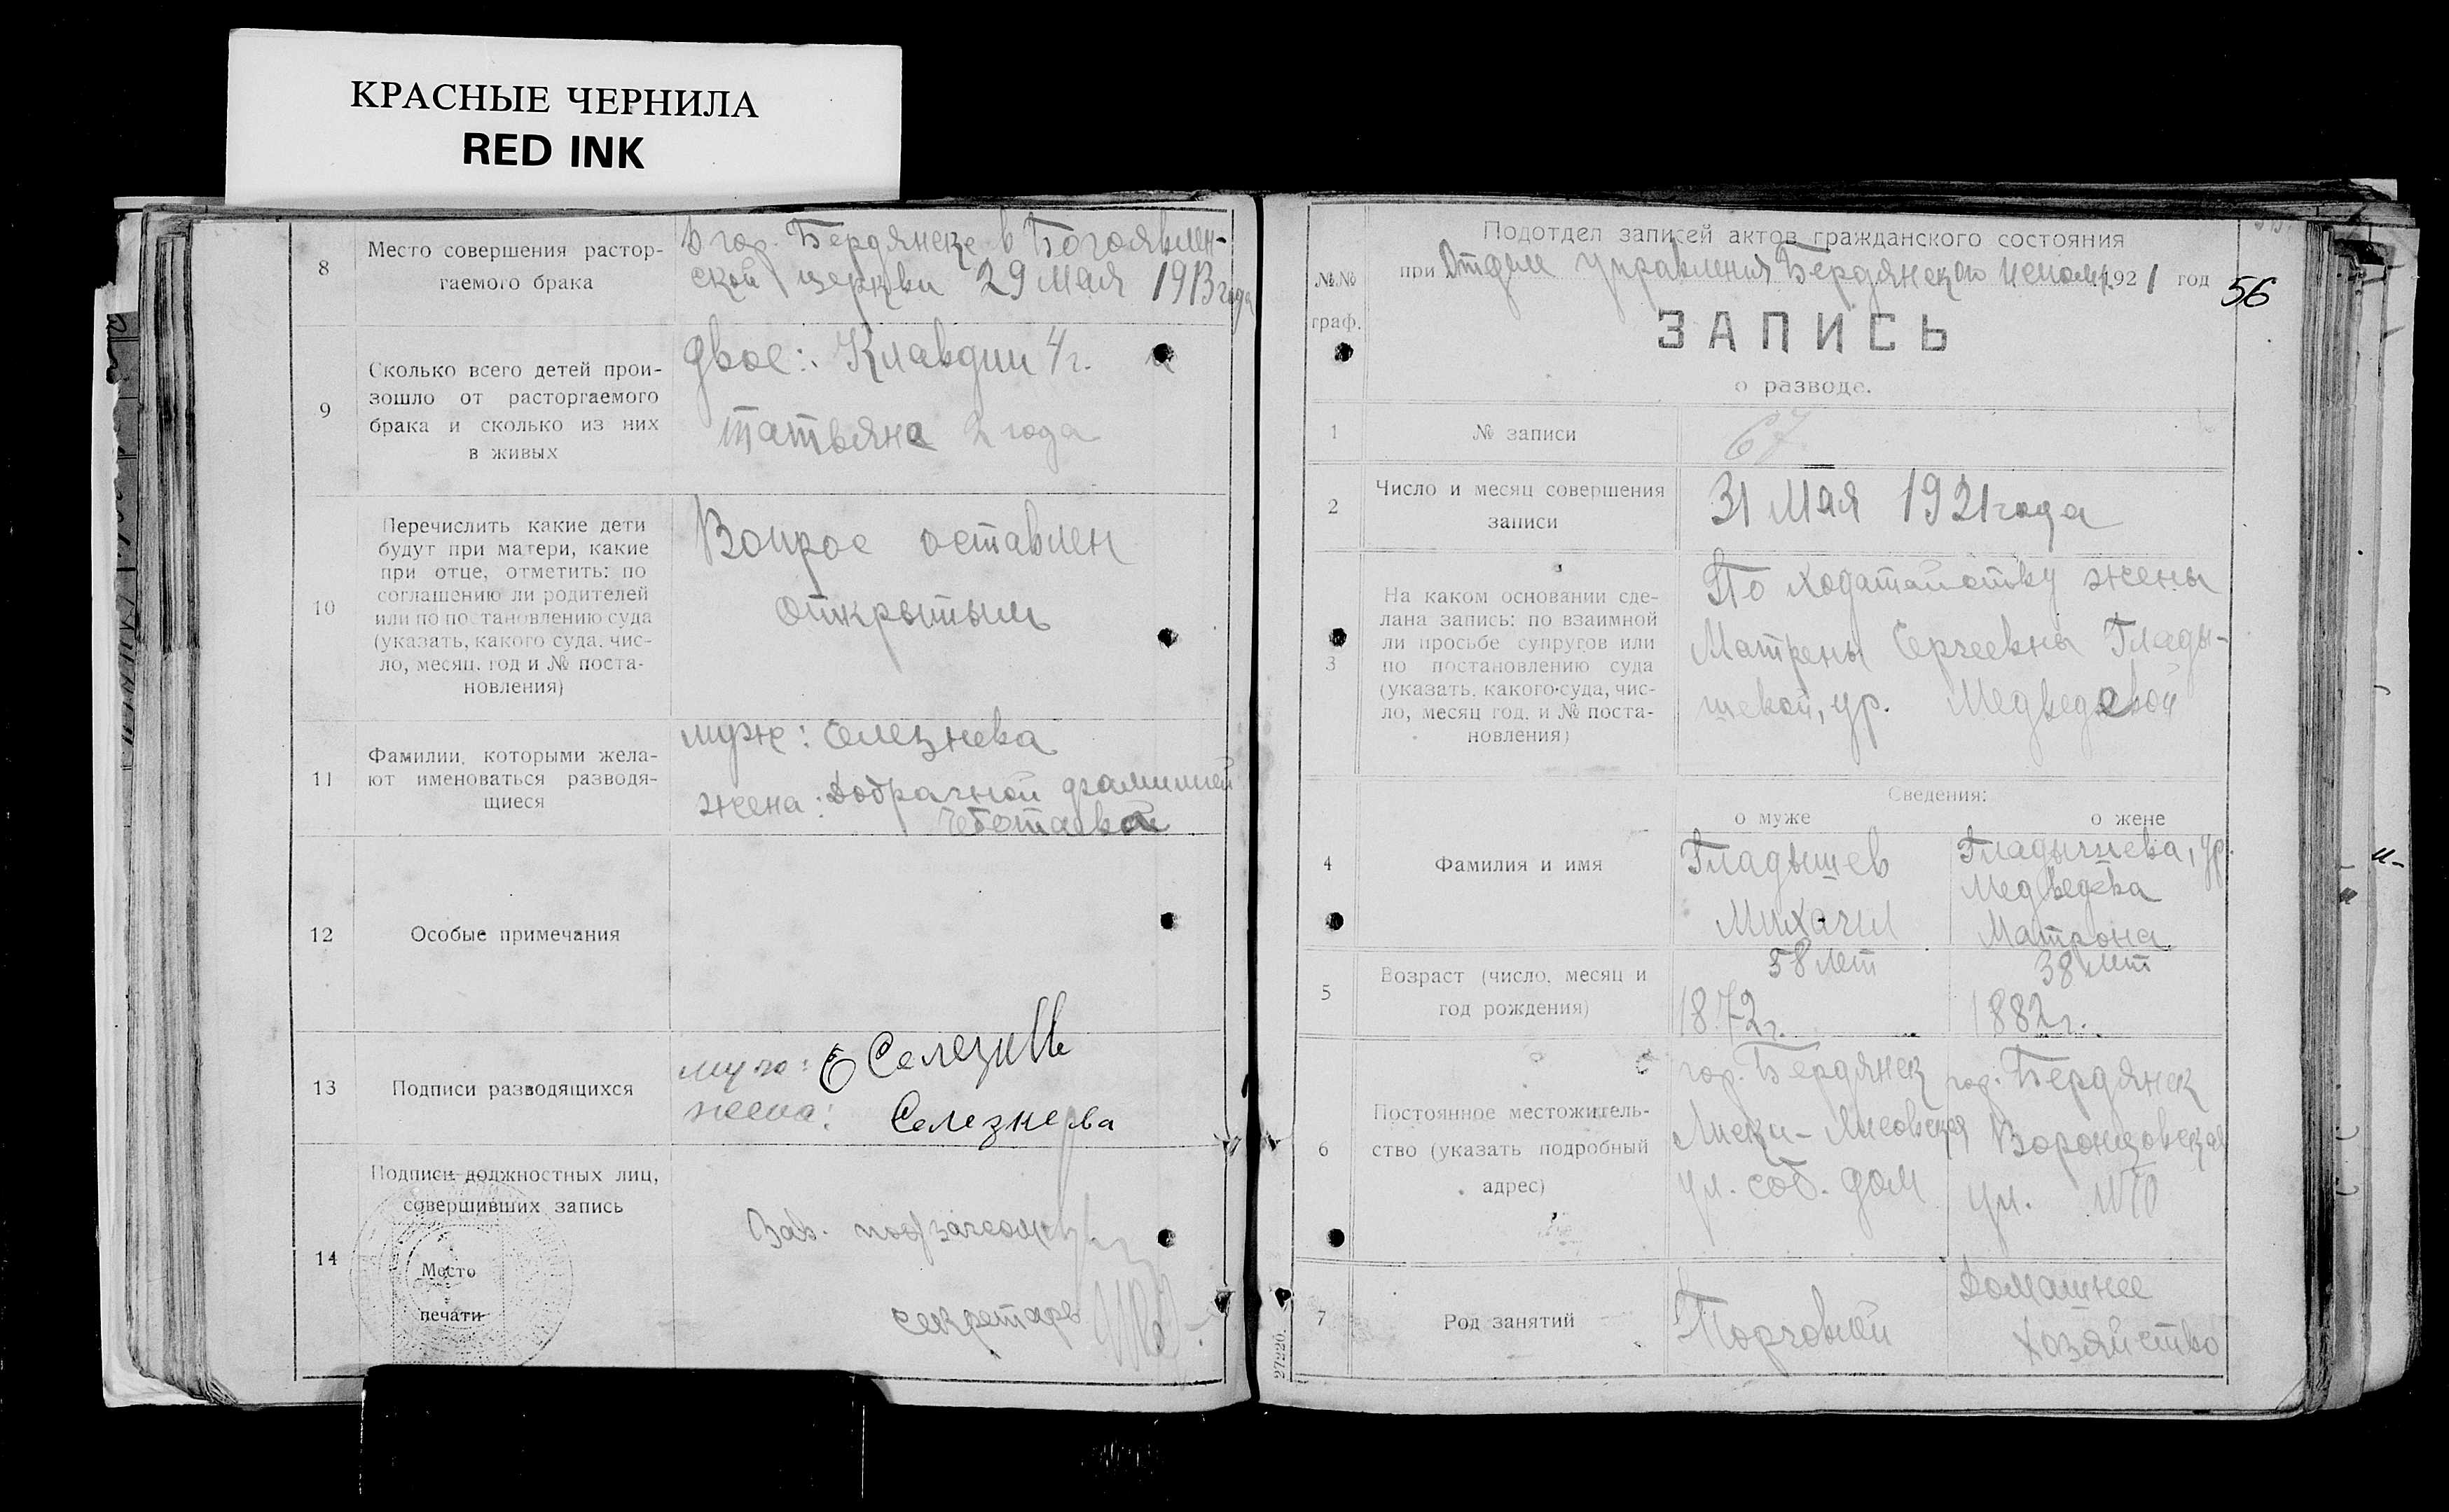 КРАСНЫЕ ЧЕРНИЛА
RED INK
8
Место совершения растор-
гаемого брака
В гор. Бердянске в Богоявлен-
ской церкви 29 Мая 1913 года
9
Сколько всего детей прои-
зошло от расторгаемого
брака и сколько из них
в живых
двое: Клавдии 4 г. и
Татьяна 2 года
10
Перечислить какие дети
будут при матери, какие
при отце, отметить: по
соглашению ли родителей
или по постановлению суда
(указать, какого суда, чис-
ло, месяц, год и № поста-
новления)
Вопрос оставлен
открытым
11
Фамилии, которыми жела-
ют именоваться разводя-
щиеся
муж: Селезнева
жена: Добрачной фамилией
12
Особые примечания
13
Подписи разводящихся
муж: Селезнев
жена: Селезнева
14
Подписи должностных лиц,
совершивших запись
Место
печати
Зав.
секретарь
Подотдел записей актов гражданского состояния
при Отделе Управления Бердянского Исполк. 1921 год
56
№.№
граф.
ЗАПИСЬ
о разводе.
1
№ записи
67
2
Число и месяц совершения
записи
31 Мая 1921 года
3
На каком основании сде-
лана запись: по взаимной
ли просьбе супругов или
по постановлению суда
(указать, какого суда, чис-
ло, месяц год, и № поста-
новления)
По ходатайству жены
Матрены Сергеевны Глады-
шевой, ур. Медведевой
Сведения:
о муже
о жене
4
Фамилия и имя
Гладышев
Михаил
Гладышева, ур.
Медведева
Матрона
5
Возраст (число, месяц и
год рождения)
58 лет
1872 г.
38 лет
1882 г.
6
Постоянное местожитель-
ство (указать подробный
адрес)
гор. Бердянск
Лиски-Лисовская
ул. соб. дом
гор. Бердянск
Воронцовская
ул. №10
7
Род занятий
Торговлей
Домашнее
хозяйство
27220.